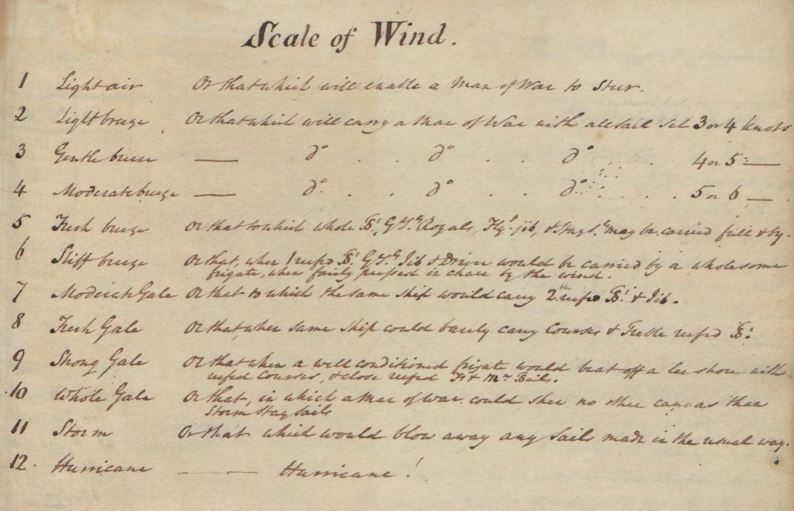 Scale of Wind.
1 Light air Or that which will enable a Man of War to Steer.
2 Light breeze Or that which will carry a Man of War with all sail set 3 or 4 knots
3 Gentle breeze — do . . do . . do . . . 4 or 5 —
4 Moderate breeze — do . . do . . do . . . 5 or 6 —
5 Fresh breeze Or that to which whole Royals, Flyg. jib, & may be carried full & by.
6 Stiff breeze Or that, when 1 reefed Jib & Driver would be carried by a wholesome
frigate, when fairly pressed in chace by the wind.
7 Moderate Gale Or that to which the same ship would carry 2 reefed & Jib.
8 Fresh Gale Or that when same ship could barely carry Courses & Treble reefed
9 Strong Gale Or that when a well conditioned frigate would beat off a lee shore with
reefed Courses, & close reefed
10 Whole Gale Or that, in which a Man of war could shew no other canvas than
Storm stay sails
11 Storm Or that which would blow away any sails made in the usual way.
12. Hurricane — — Hurricane!